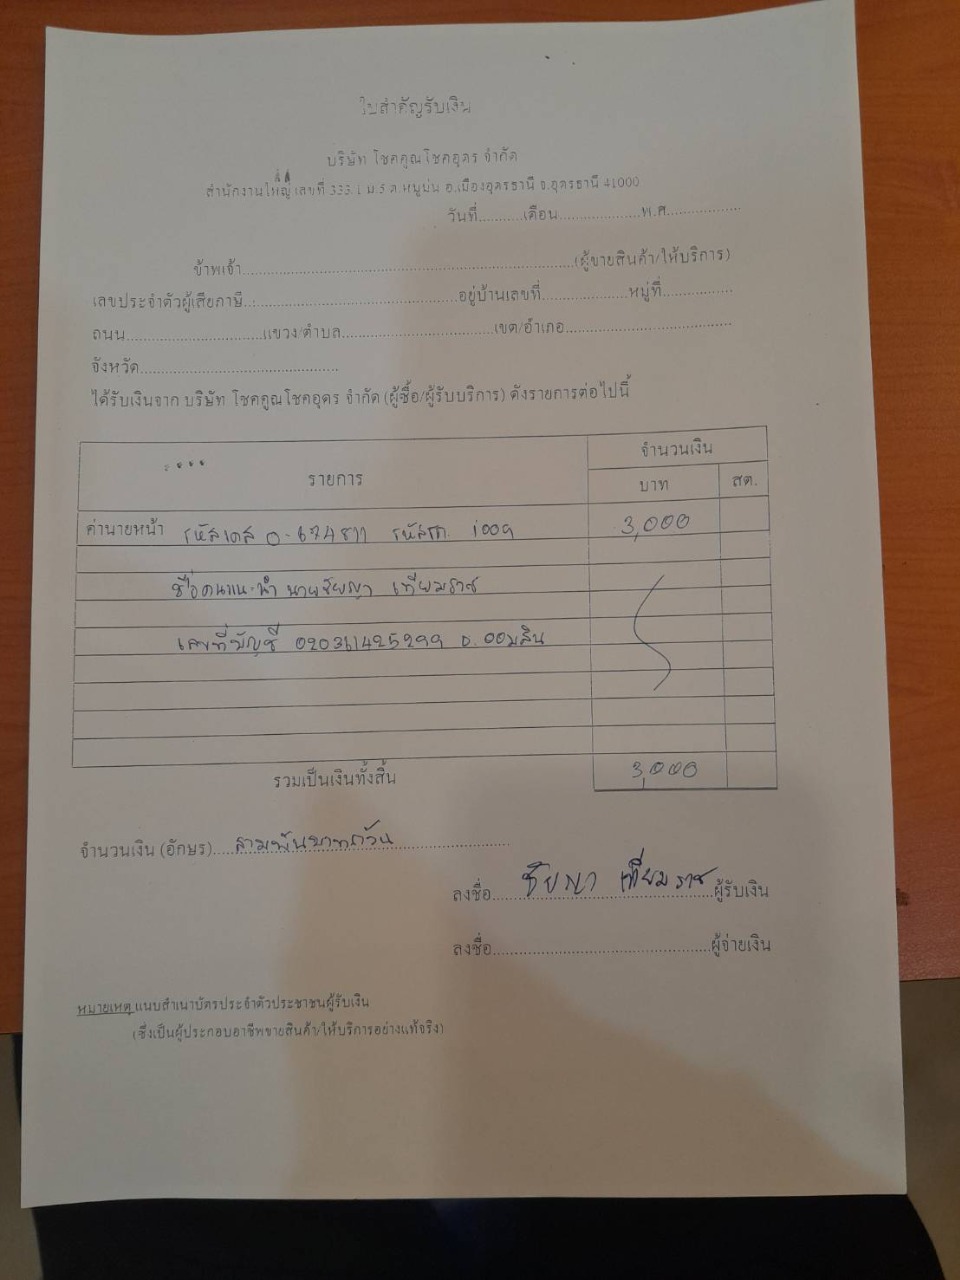 ใบสำคัญรับเงิน
บริษัท โชคคูณโชคอุดร จำกัด
สำนักงานใหญ่ เลขที่ 333/1 ม.5 ต.หมูม่น อ.เมืองอุดรธานี จ.อุดรธานี 41000
วันที่...........เดือน....................พ.ศ..................
ข้าพเจ้า................................................................................(ผู้ขายสินค้า/ให้บริการ)
เลขประจำตัวผู้เสียภาษี..................................................อยู่บ้านเลขที่.....................หมู่ที่.................
ถนน.................................แขวง/ตำบล.....................................เขต/อำเภอ........................................
จังหวัด................................................
ได้รับเงินจาก บริษัท โชคคูณโชคอุดร จำกัด (ผู้ซื้อ/ผู้รับบริการ) ดังรายการต่อไปนี้
รายการ จำนวนเงิน
บาท สต.
ค่านายหน้า รหัสเคส 0-674811 1009 3,000
ชื่อคนแนะนำ นายชัยญา เทียมราช
เลขที่บัญชี 020361425299 ธ.ออมสิน
รวมเป็นเงินทั้งสิ้น 3,000
จำนวนเงิน (อักษร)....สามพันบาทถ้วน
ลงชื่อ ชัยญา เทียมราช ผู้รับเงิน
ลงชื่อ.....................................................ผู้จ่ายเงิน
หมายเหตุ แนบสำเนาบัตรประจำตัวประชาชนผู้รับเงิน
(ซึ่งเป็นผู้ประกอบอาชีพขายสินค้า/ให้บริการอย่างแท้จริง)